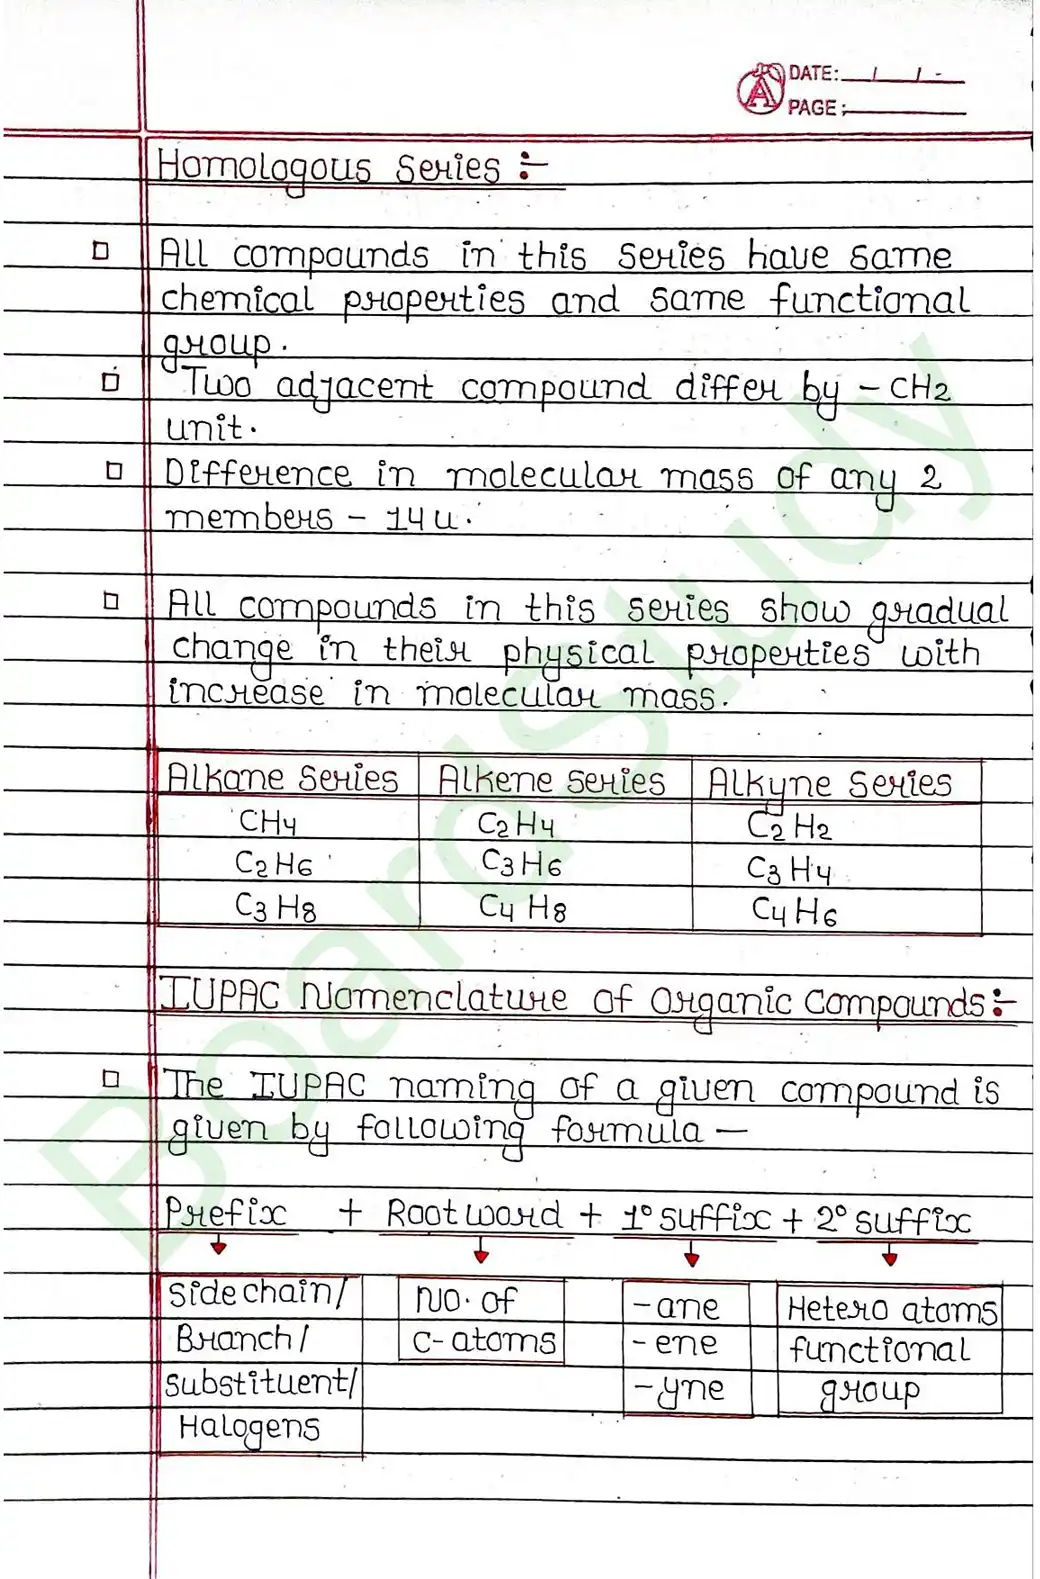 DATE: / / -
PAGE:
Homologous Series :-
□ All compounds in this Series have same
chemical properties and same functional
group.
□ Two adjacent compound differ by - CH2
unit.
□ Difference in molecular mass of any 2
members - 14u.
□ All compounds in this series show gradual
change in their physical properties with
increase in molecular mass.
Alkane Series Alkene series Alkyne Series
CH4 C2H4 C2H2
C2H6 C3H6 C3H4
C3H8 C4H8 C4H6
IUPAC Nomenclature of Organic Compounds:-
□ The IUPAC naming of a given compound is
given by following formula —
Prefix + Root word + 1° suffix + 2° suffix
Side chain/ No. of -ane Hetero atoms
Branch/ C-atoms -ene functional
substituent/ -yne group
Halogens
BoardStudy